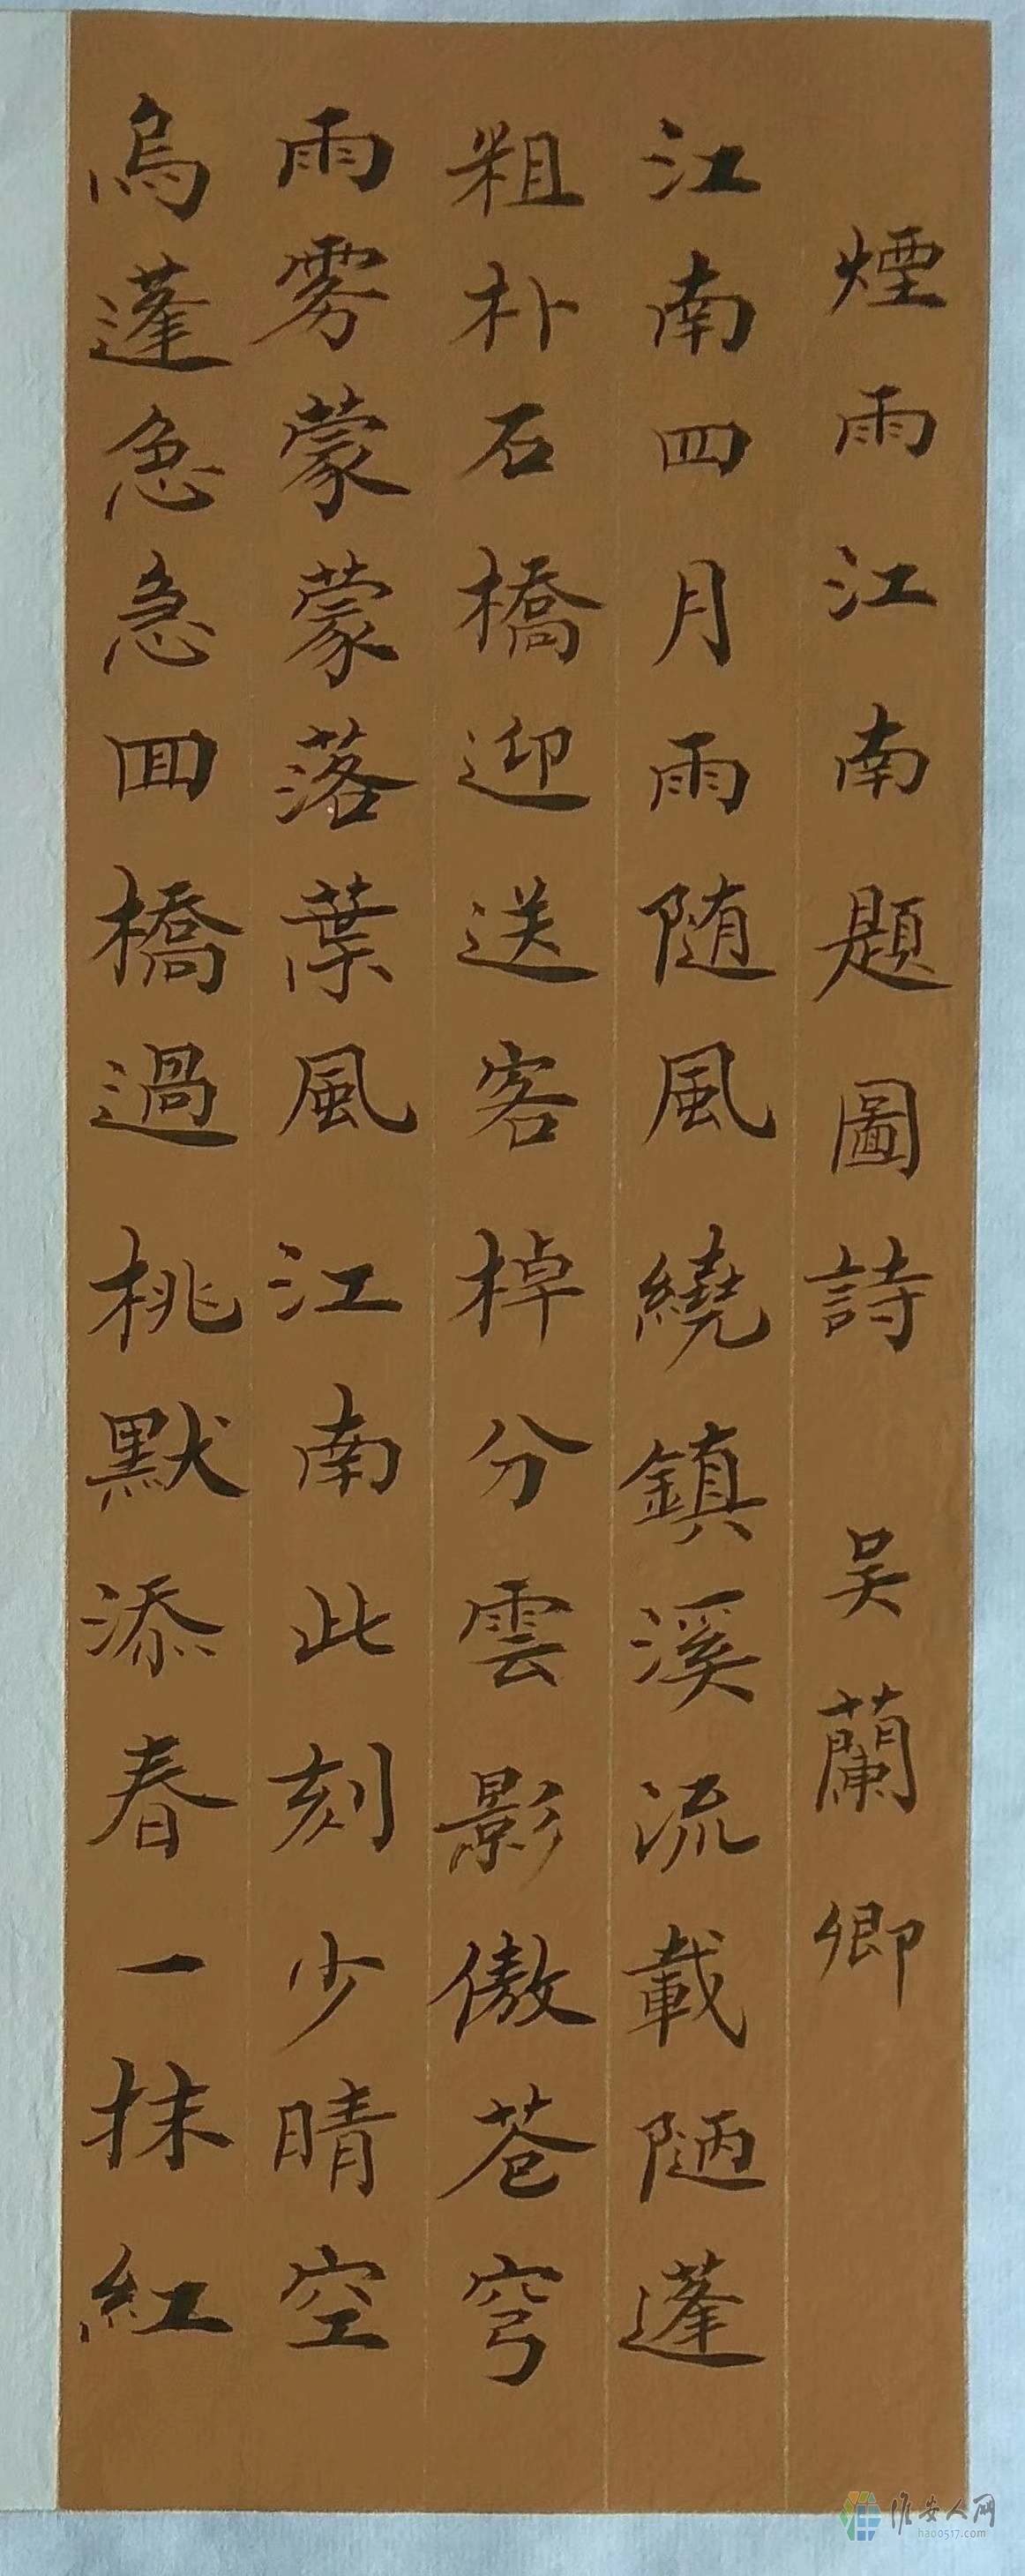 煙雨江南題圖詩 吴蘭卿
江南四月雨随風 繞鎮溪流載陋蓬
粗朴石橋迎送客 棹分雲影傲苍穹
雨雾蒙蒙落葉風 江南此刻少晴空
烏蓬急急回橋過 桃默添春一抹紅
淮安人网
hao0517.com